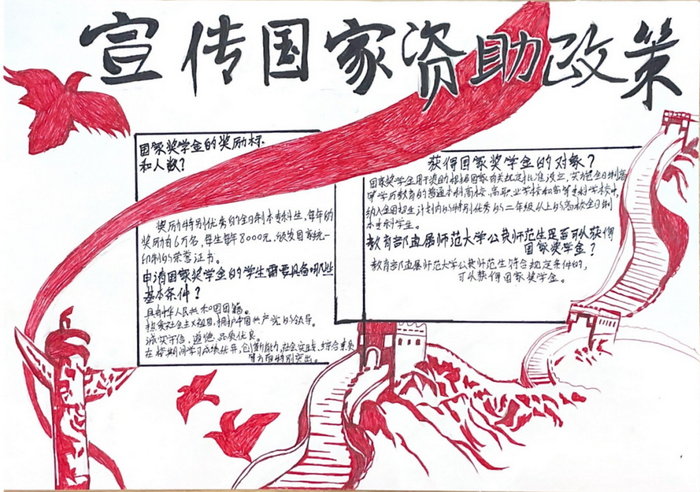 宣传国家资助政策
国家奖学金的奖励标
和人数?
奖励特别优秀的全日制本专科生,每年
奖励6万名,每生每年8000元,颁发国家统一
印制的荣誉证书。
申请国家奖学金的学生需要具备哪些
基本条件?
具有中华人民共和国国籍。
热爱社会主义祖国,拥护中国共产党的领导。
诚实守信,道德品质优良。
在校期间学习成绩优异,创新能力、社会实践、综合素质
等方面特别突出。
获得国家奖学金的对象?
国家奖学金用于奖励根据国家有关规定批准设立、实施全日制
高等学历教育的普通本科高校、高等职业学校和高等专科学校中,
纳入全国招生计划内的特别优秀的二年级以上的全日制
本专科学生。
教育部直属师范大学公费师范生是否可以获得
国家奖学金?
教育部直属师范大学公费师范生符合规定条件的,
可以获得国家奖学金。